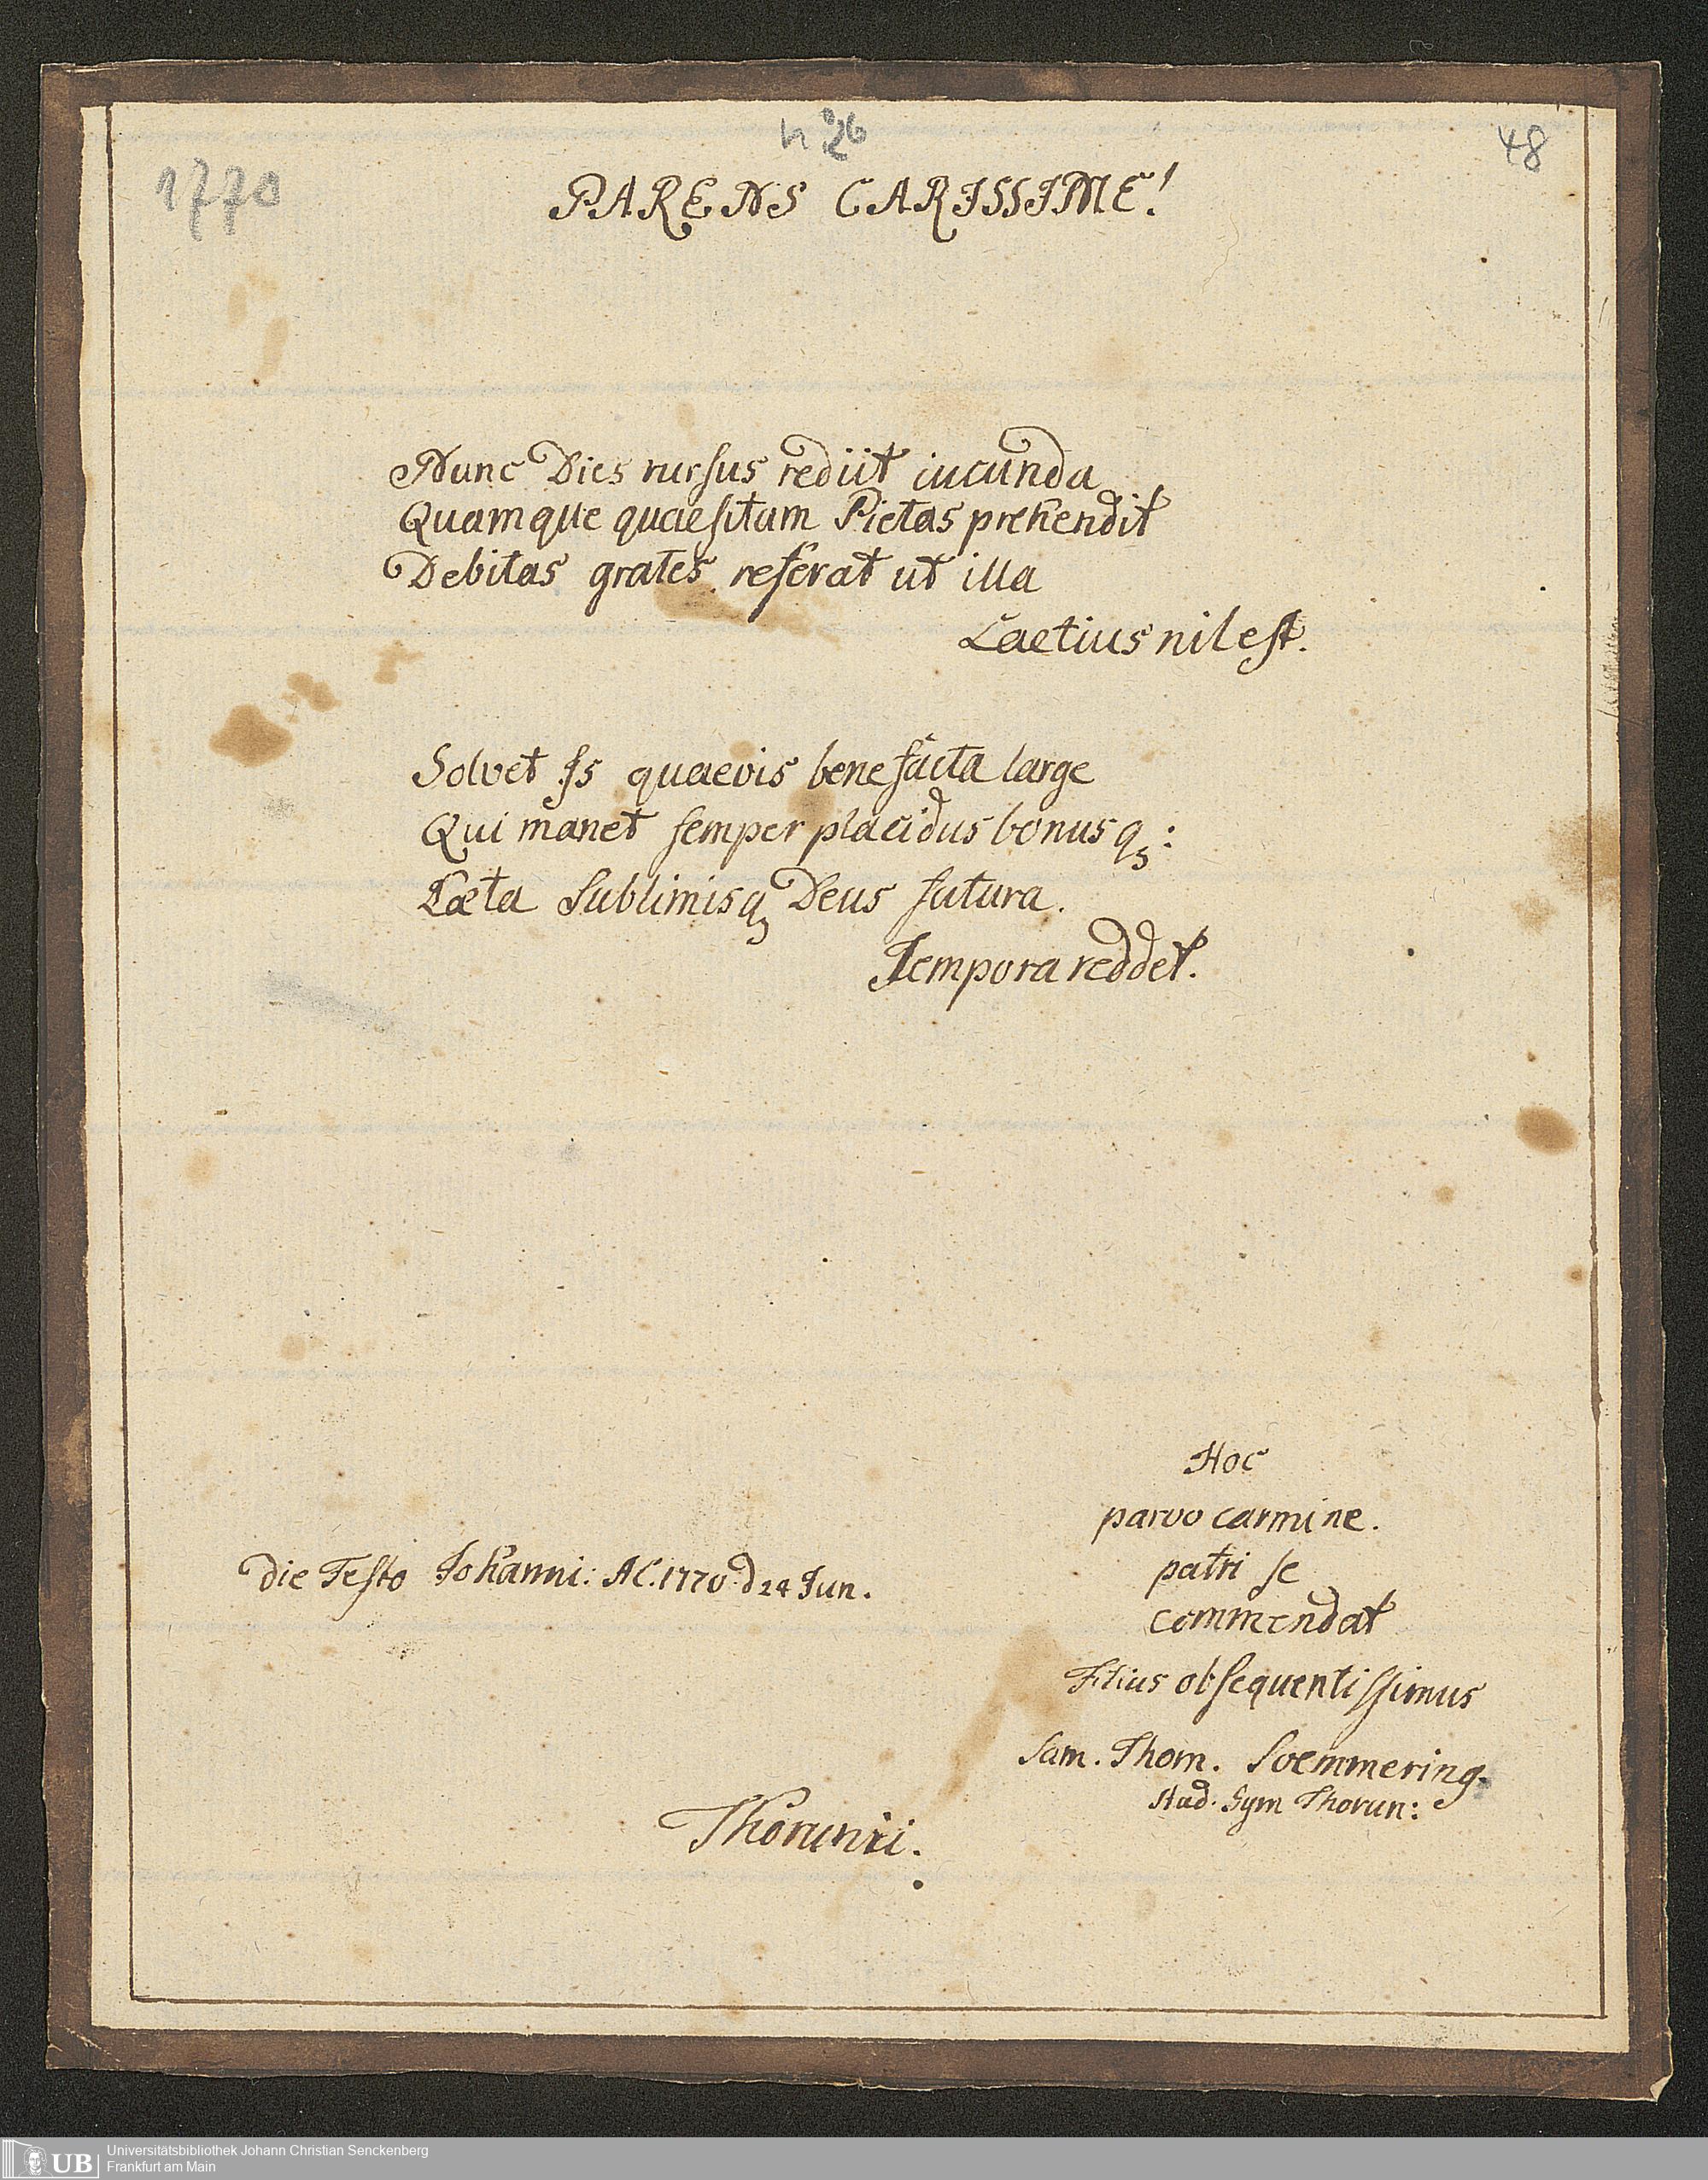 n° 26
48
1770
PARENS CARISSIME!
Nunc Dies rursus rediit iucunda
Quamque quaesitam Pietas prehendit
Debitas grates referat ut illa
Laetius nil est.
Solvet Is quaevis benefacta large
Qui manet semper placidus bonusq3:
Læta sublimisq3 Deus futura.
Tempora reddet.
Hoc
parvo carmine.
patri se
commendat
Filius obsequentissimus
Sam. Thom. Soemmering.
Stud. Gym Thorun:
Die Festo Johanni: AC. 1770 d 24 Jun.
Thorunii.
UB
Universitätsbibliothek Johann Christian Senckenberg
Frankfurt am Main